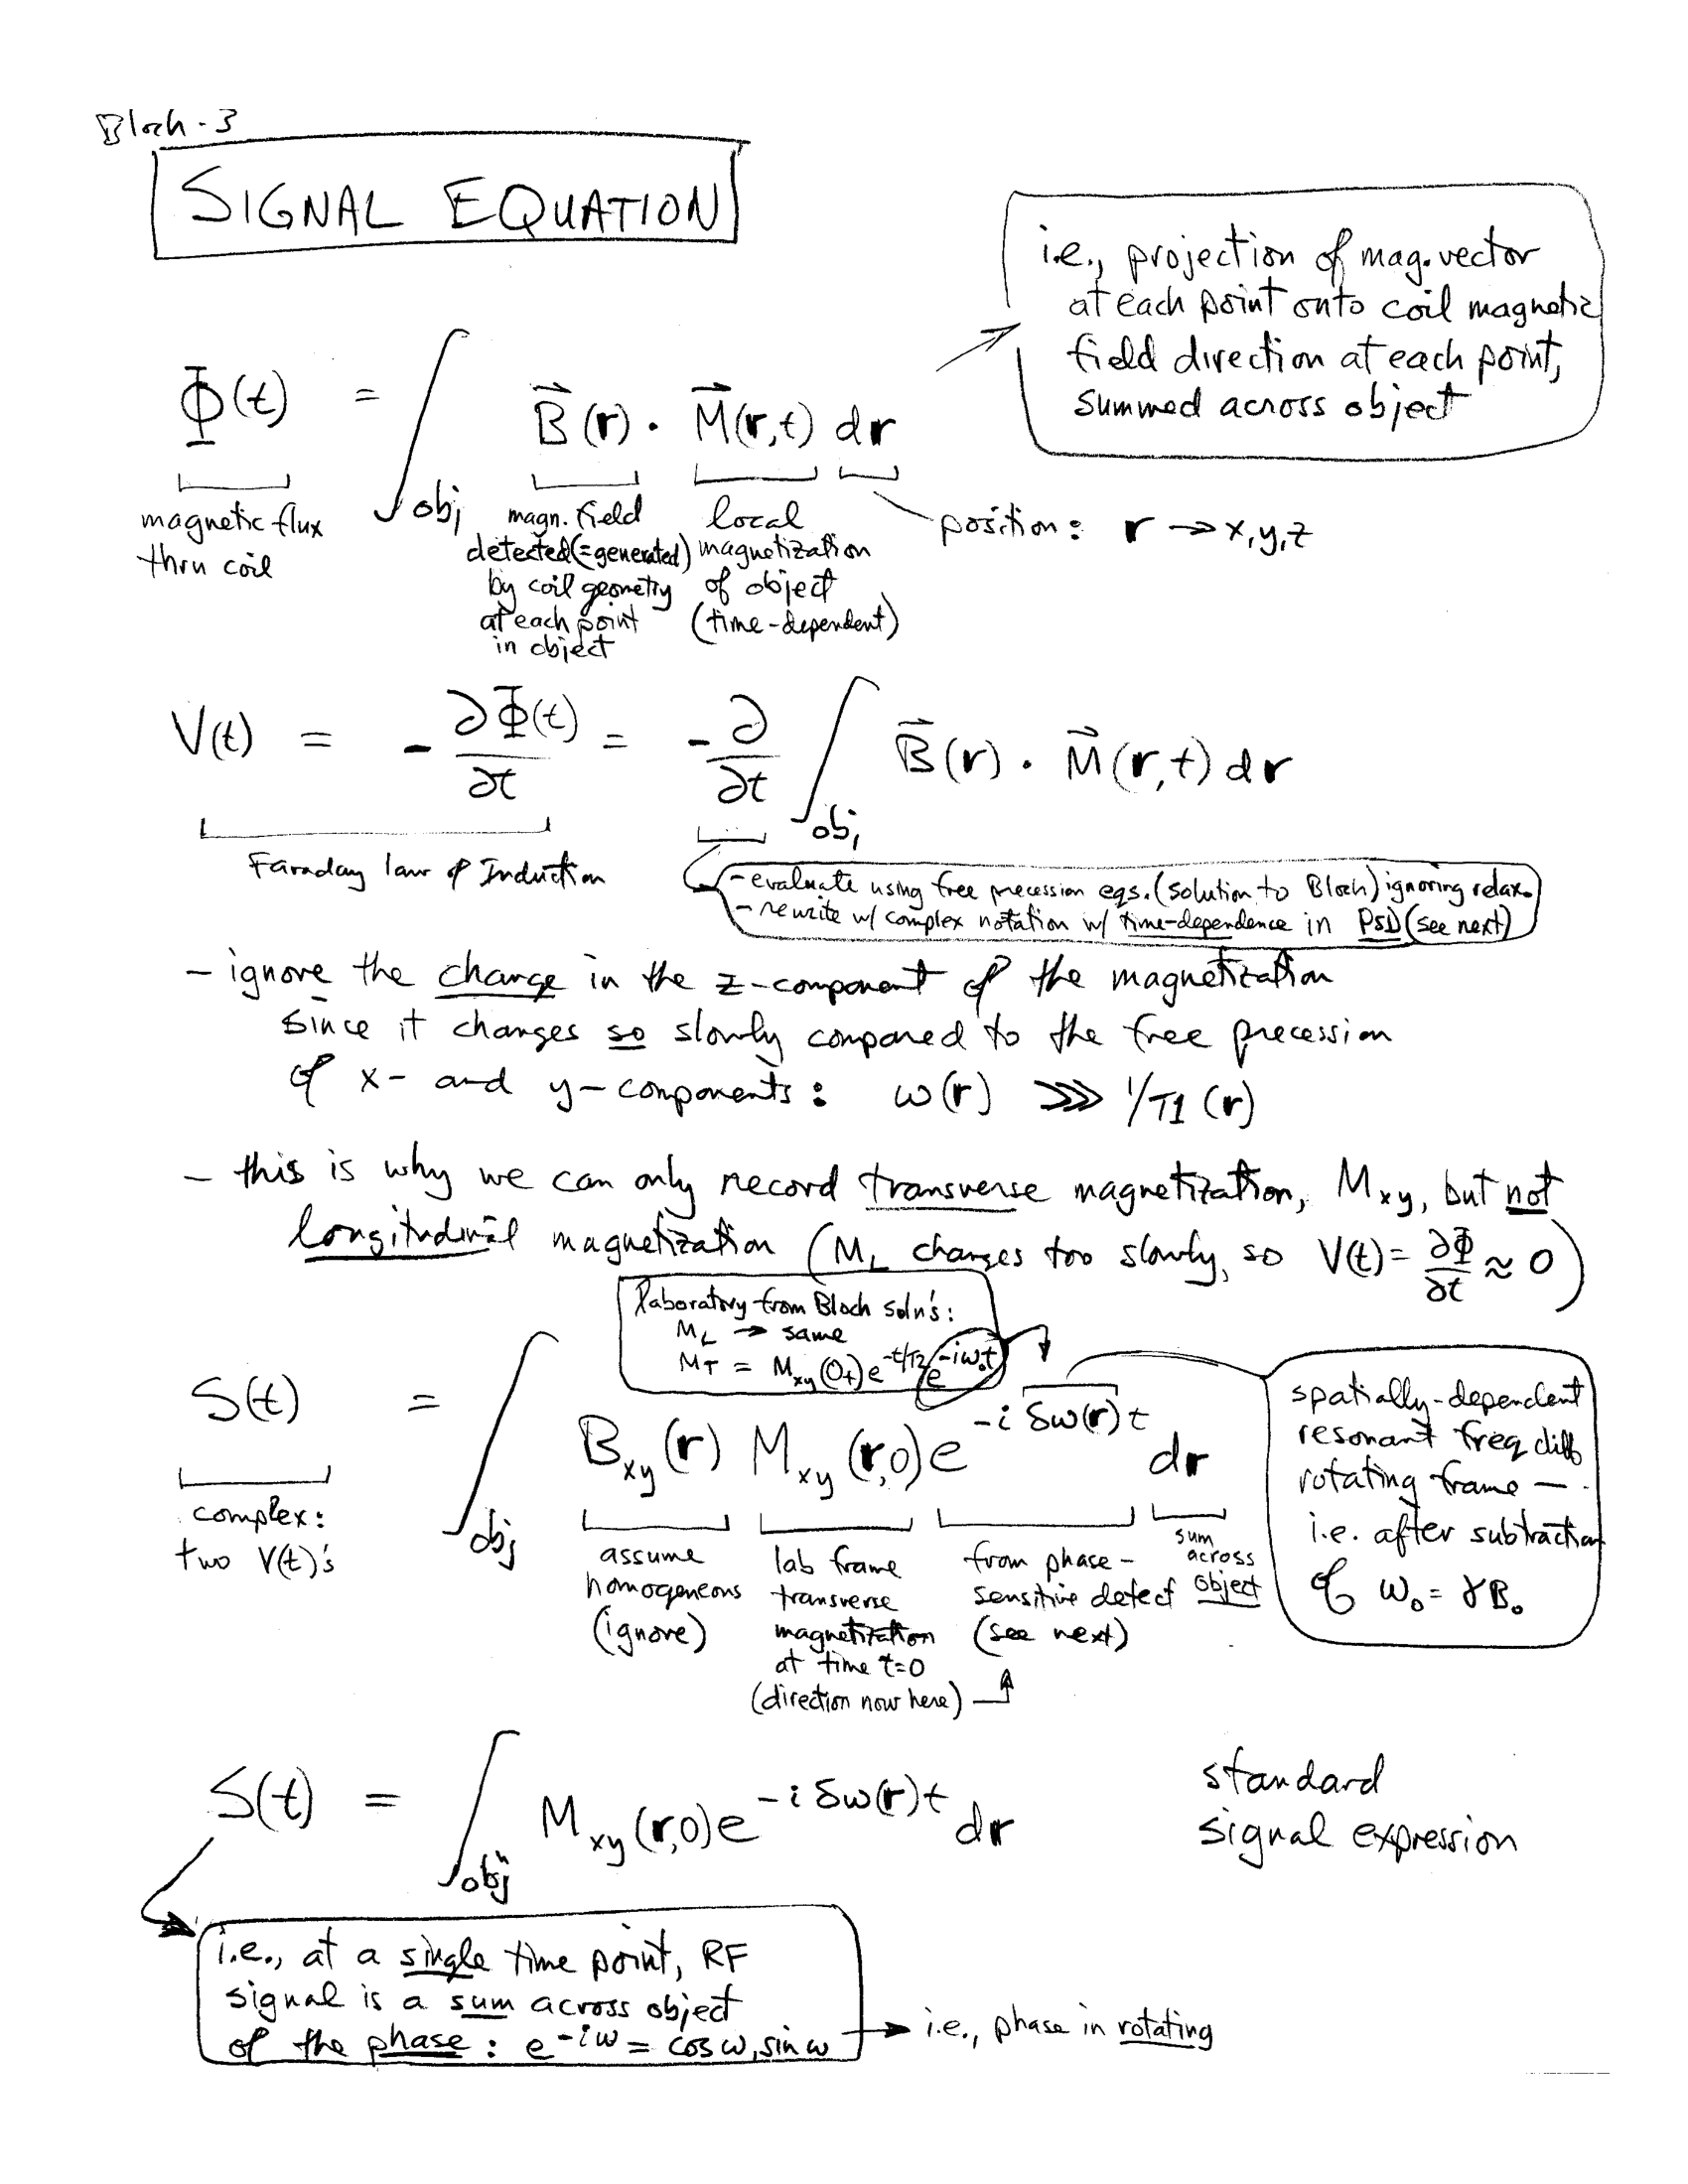 Bloch - 3
SIGNAL EQUATION
i.e., projection of mag. vector
at each point onto coil magnetic
field direction at each point,
summed across object
Φ(t) = ∫obj B⃗(r) · M⃗(r,t) dr
magnetic flux
thru coil
magn. field
detected (=generated)
by coil geometry
at each point
in object
local
magnetization
of object
(time-dependent)
position: r → x,y,z
V(t) = - ∂Φ(t)/∂t = - ∂/∂t ∫obj B⃗(r) · M⃗(r,t) dr
Faraday law of Induction
- evaluate using free precession eqs. (solution to Bloch) ignoring relax.
- rewrite w/ complex notation w/ time-dependence in PSD (see next)
- ignore the change in the z-component of the magnetization
since it changes so slowly compared to the free precession
of x- and y-components: ω(r) >>> 1/T1 (r)
- this is why we can only record transverse magnetization, Mxy, but not
longitudinal magnetization (ML changes too slowly, so V(t) = ∂Φ/∂t ≈ 0)
laboratory from Bloch soln's:
ML → same
MT = Mxy(0+) e^-t/T2 e^-iω₀t
S(t) = ∫obj Bxy(r) Mxy(r,0) e^-i δω(r)t dr
complex:
two V(t)'s
assume
homogeneous
(ignore)
lab frame
transverse
magnetization
at time t=0
(direction now here)
from phase-
sensitive detect
(see next)
sum
across
object
spatially-dependent
resonant freq diff
rotating frame —
i.e. after subtraction
of ω₀ = γB₀
S(t) = ∫obj Mxy(r,0) e^-i δω(r)t dr
standard
signal expression
i.e., at a single time point, RF
signal is a sum across object
of the phase: e^-iω = cos ω, sin ω
→ i.e., phase in rotating